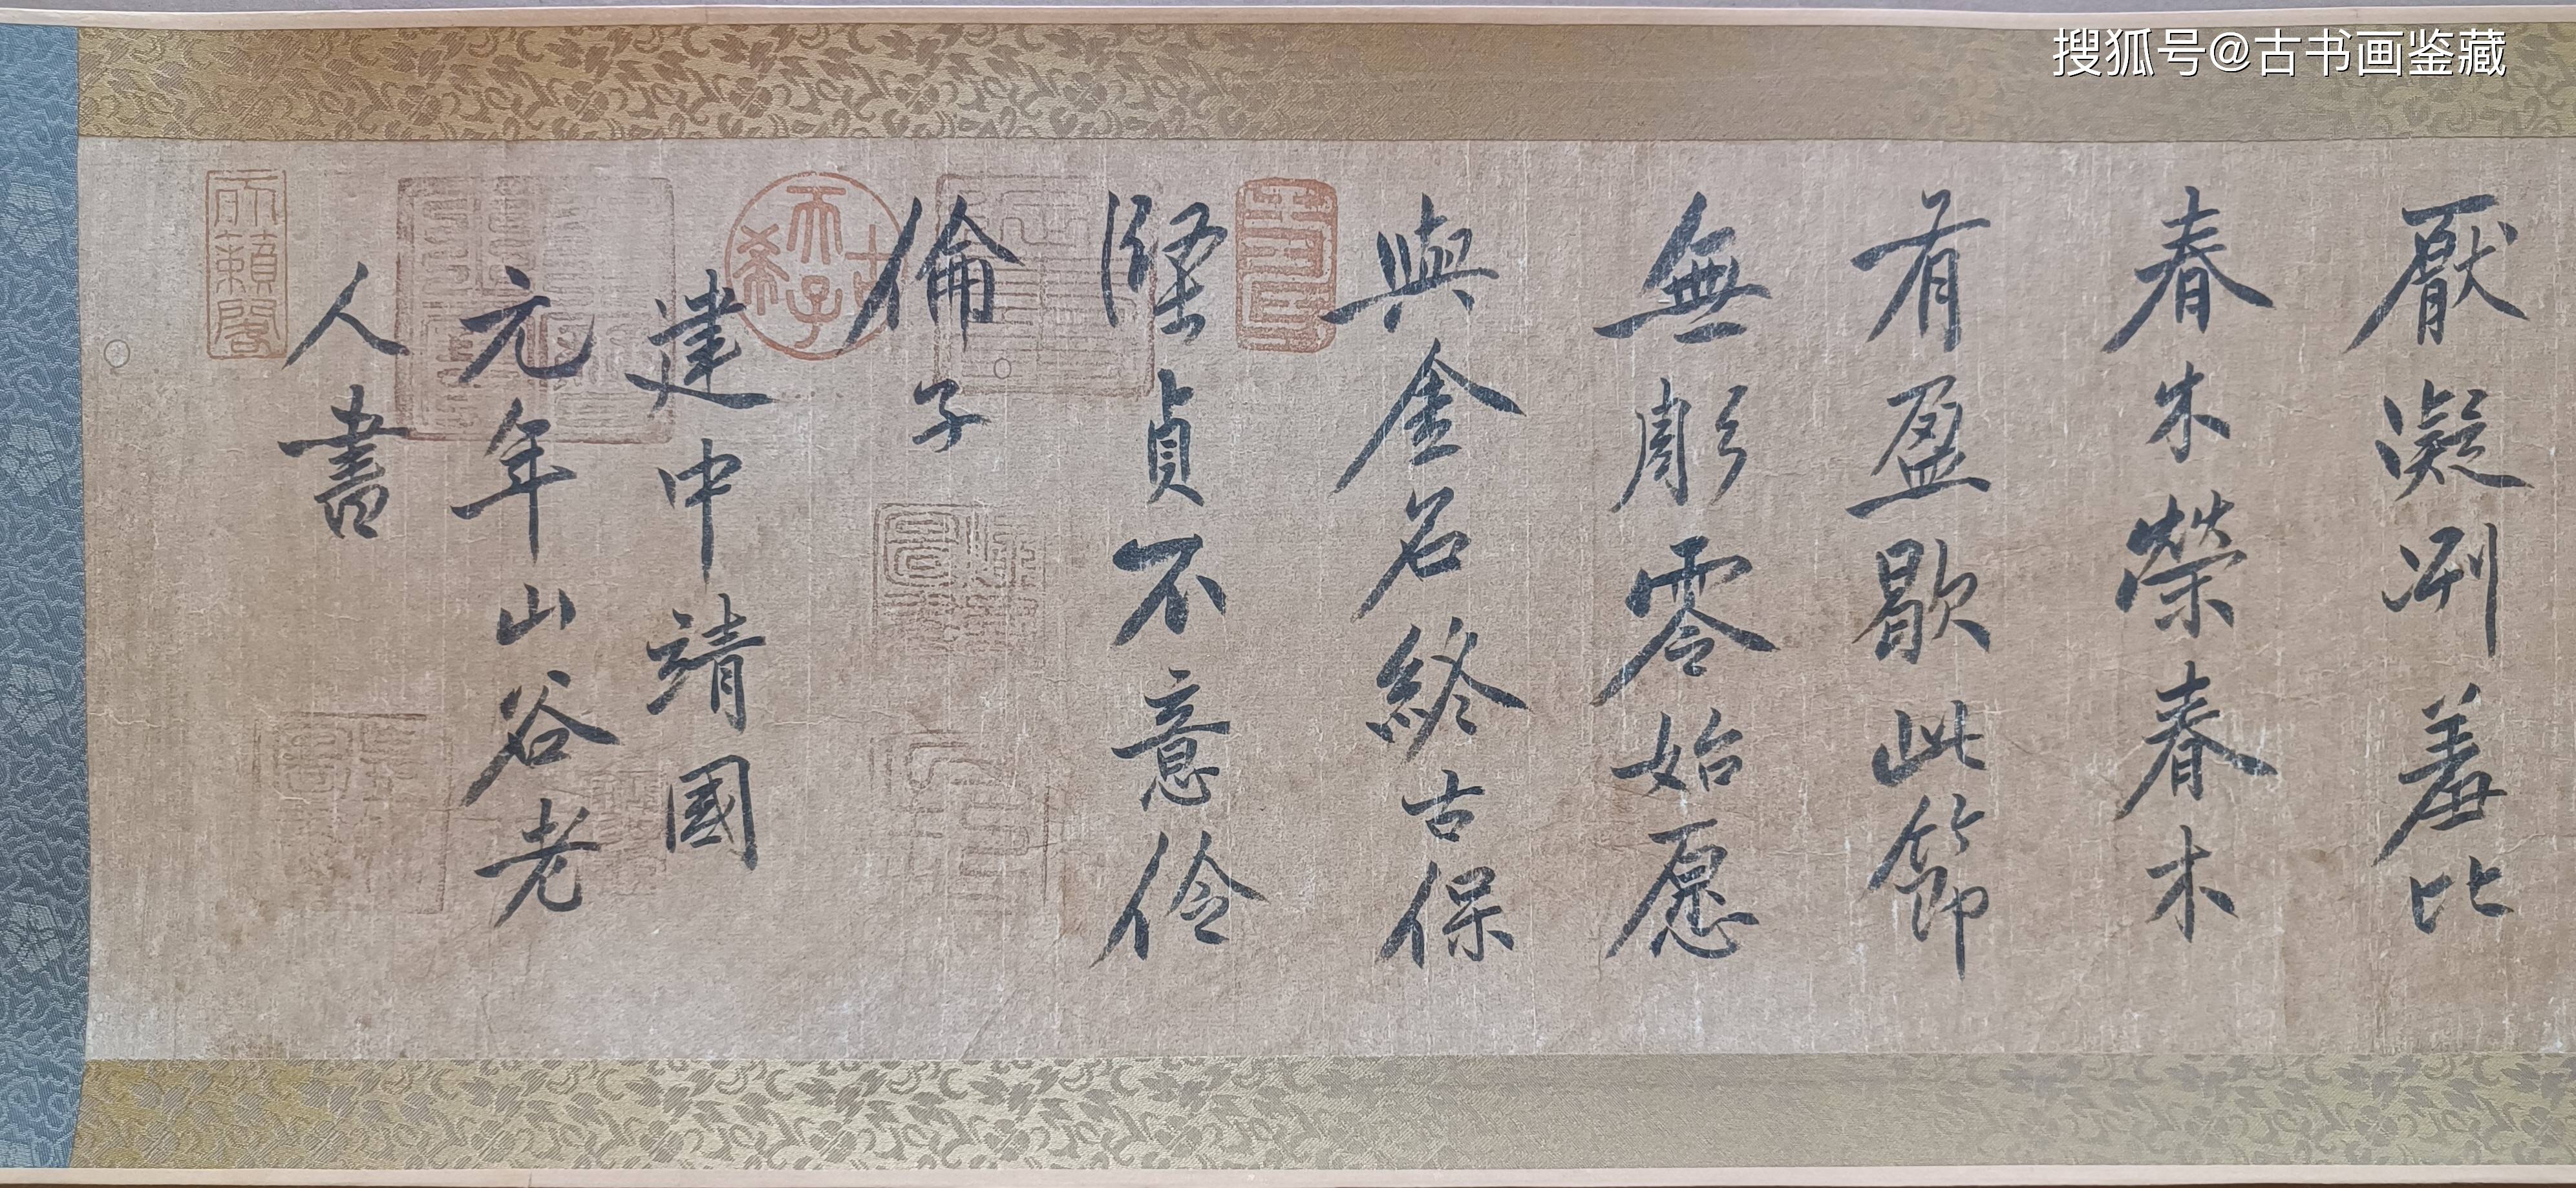 搜狐号@古书画鉴藏
厭凝冽羞比
春木榮春木
有盈歇此節
無彫零始愿
與金石終古保
堅貞不意伶
倫子
建中靖國
元年山谷老
人書
古希天子
天籟閣